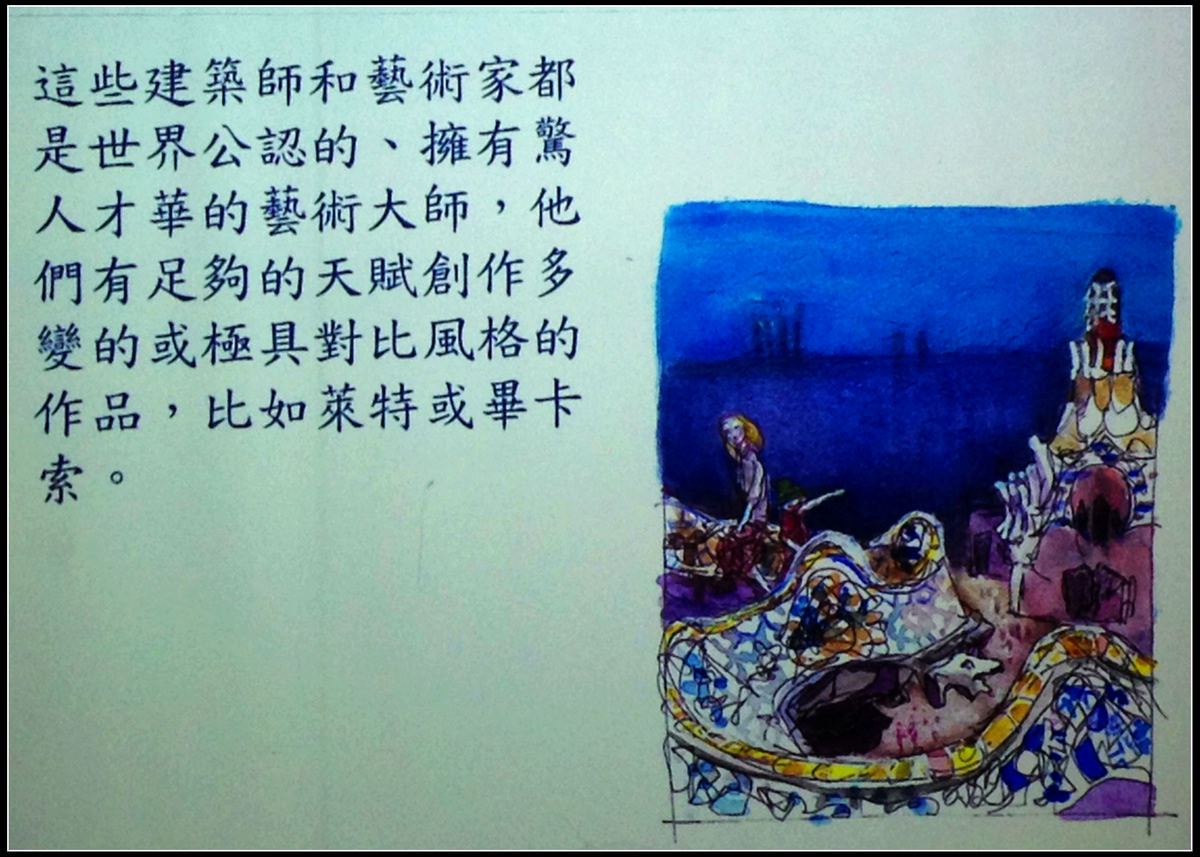 這些建築師和藝術家都
是世界公認的、擁有驚
人才華的藝術大師，他
們有足夠的天賦創作多
變的或極具對比風格的
作品，比如萊特或畢卡
索。